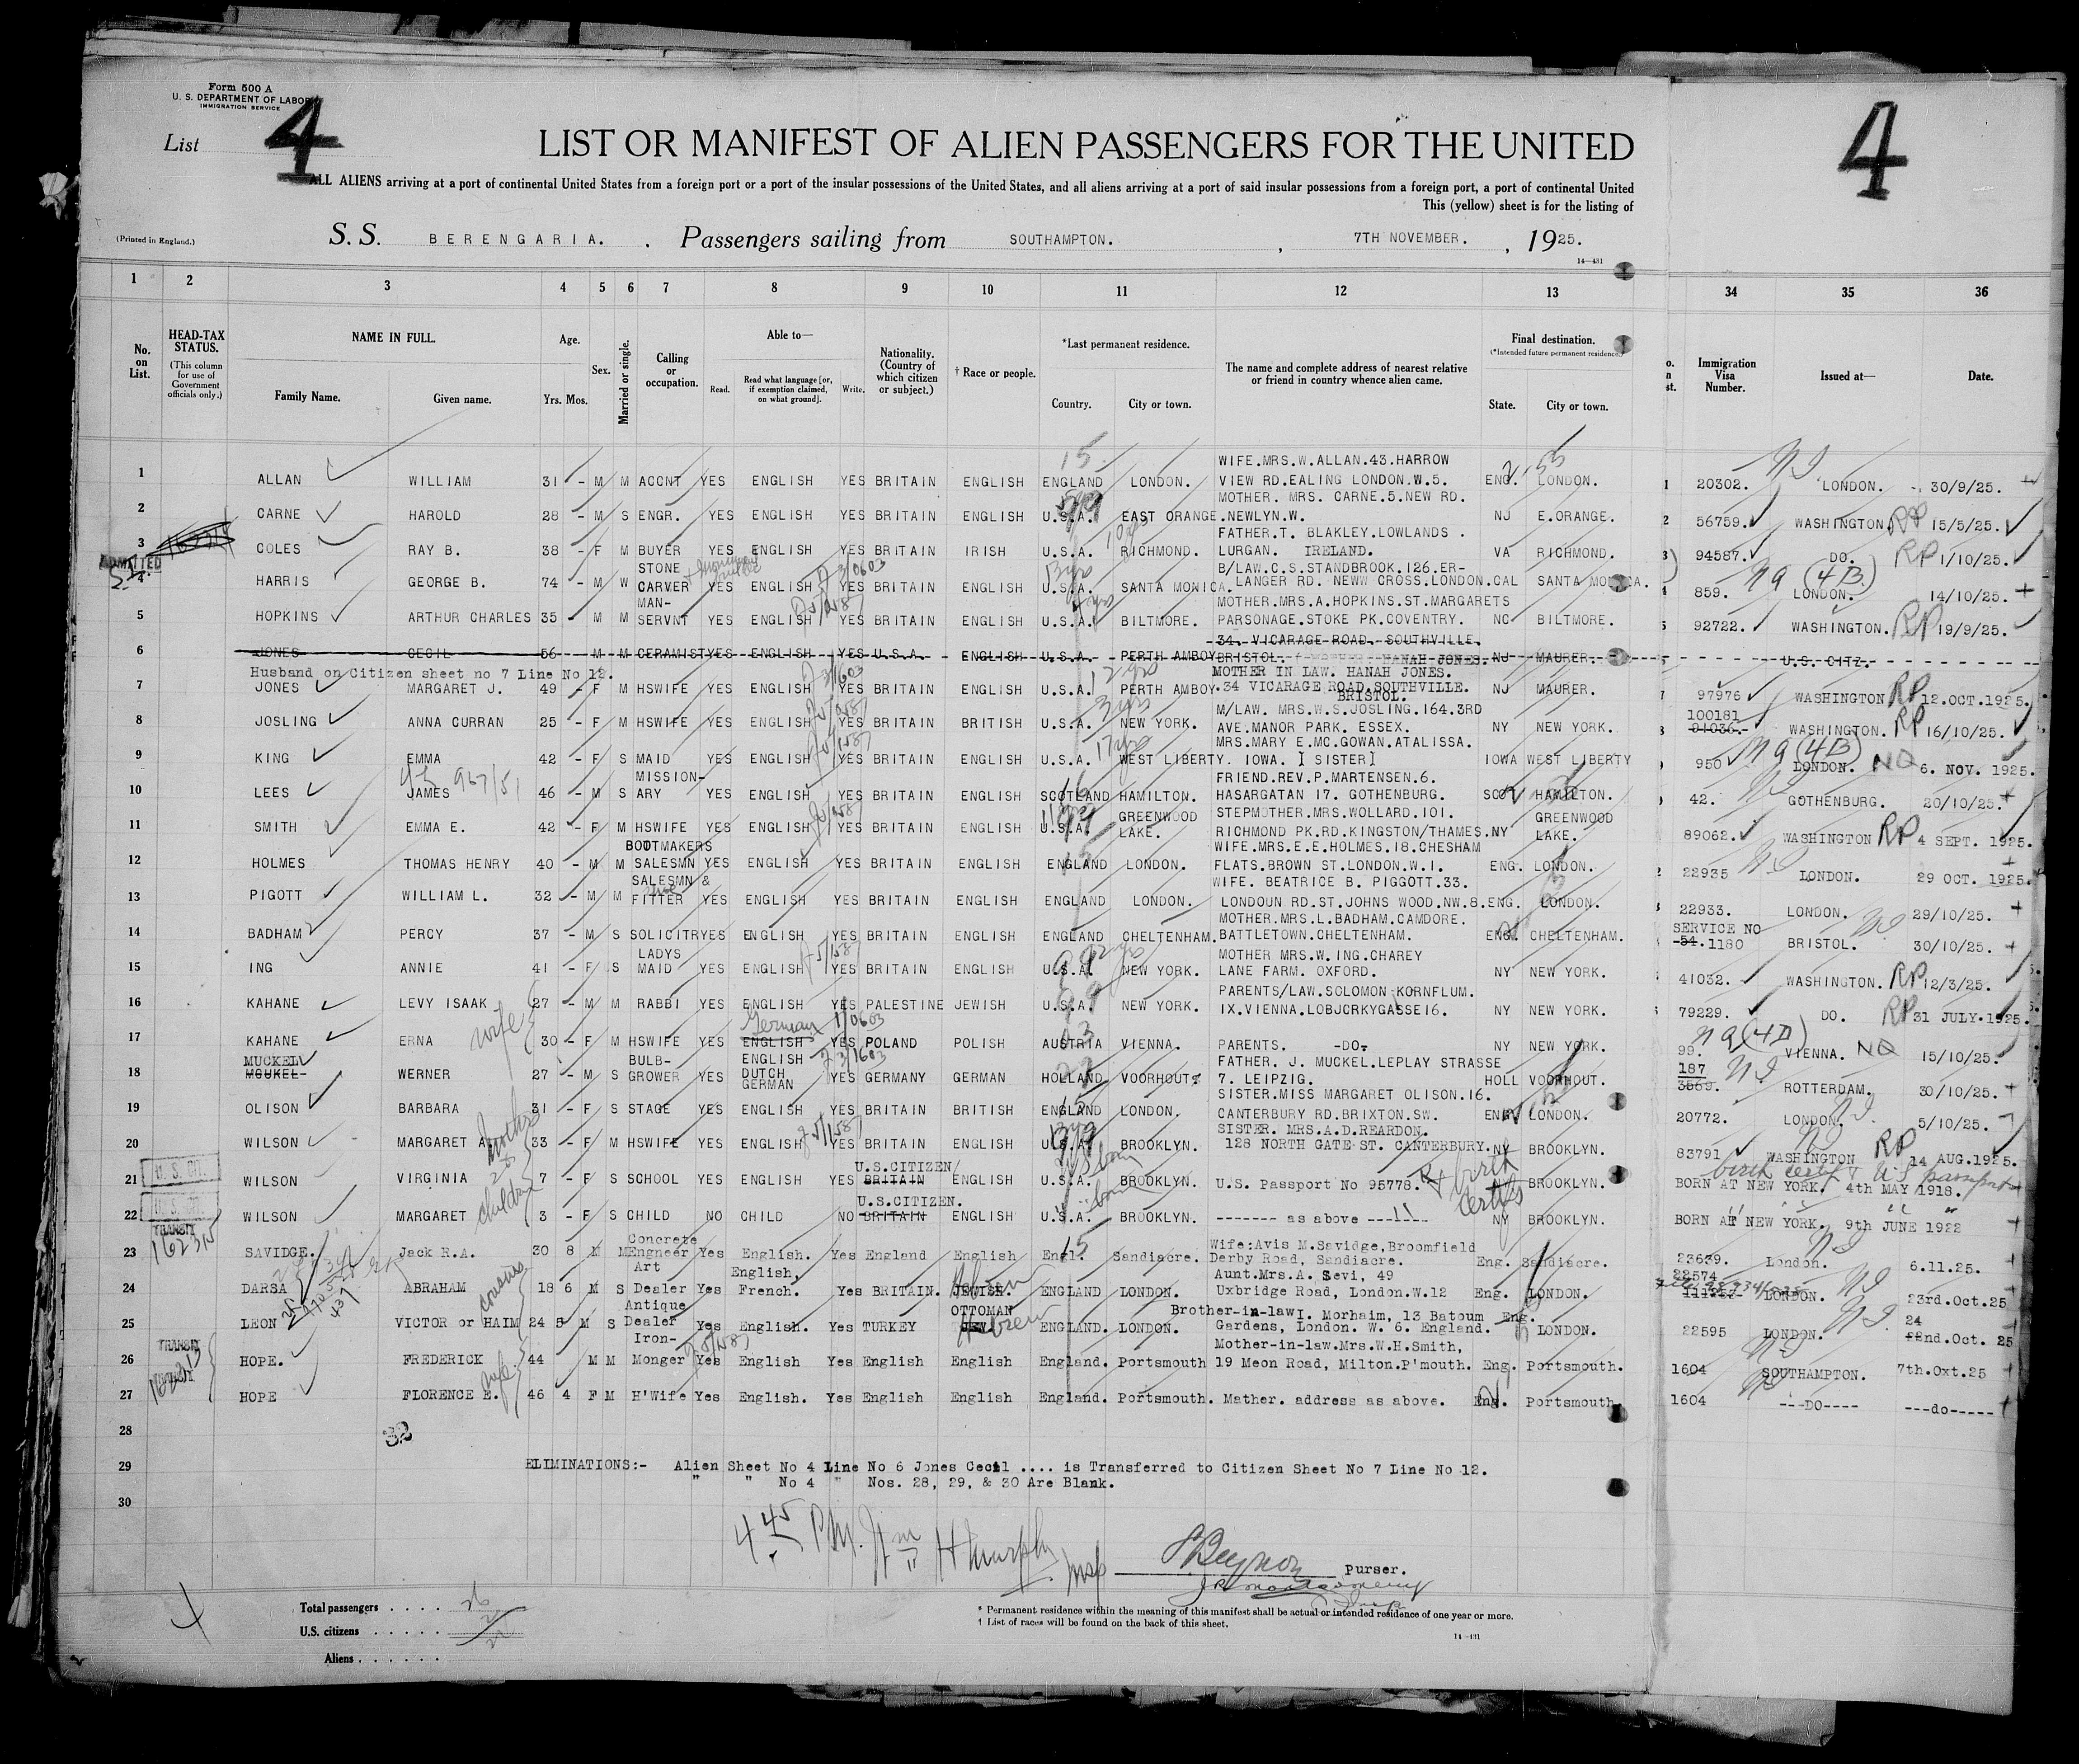 Form 500 A
U. S. DEPARTMENT OF LABOR
IMMIGRATION SERVICE
List 4
4
LIST OR MANIFEST OF ALIEN PASSENGERS FOR THE UNITED
ALL ALIENS arriving at a port of continental United States from a foreign port or a port of the insular possessions of the United States, and all aliens arriving at a port of said insular possessions from a foreign port, a port of continental United
This (yellow) sheet is for the listing of
(Printed in England.)
S. S. BERENGARIA. , Passengers sailing from SOUTHAMPTON. , 7TH NOVEMBER. , 1925.
14—431
1 2 3 4 5 6 7 8 9 10 11 12 13 34 35 36
No. on List.
HEAD-TAX STATUS.
(This column for use of Government officials only.)
NAME IN FULL.
Family Name. Given name.
Age.
Yrs. Mos.
Sex.
Married or single.
Calling or occupation.
Able to—
Read. Read what language [or, if exemption claimed, on what ground]. Write.
Nationality. (Country of which citizen or subject.)
† Race or people.
*Last permanent residence.
Country. City or town.
The name and complete address of nearest relative or friend in country whence alien came.
Final destination.
(*Intended future permanent residence.)
State. City or town.
Immigration Visa Number.
Issued at—
Date.
1 ALLAN WILLIAM 31 - M M ACCNT YES ENGLISH YES BRITAIN ENGLISH ENGLAND LONDON. WIFE.MRS.W.ALLAN.43.HARROW VIEW RD.EALING LONDON.W.5. ENG. LONDON. 20302. LONDON. 30/9/25.
2 CARNE HAROLD 28 - M S ENGR. YES ENGLISH YES BRITAIN ENGLISH U.S.A. EAST ORANGE. MOTHER. MRS. CARNE.5.NEW RD. NEWLYN.W. NJ E.ORANGE. 56759. WASHINGTON. RP 15/5/25.
ADMITTED
3 COLES RAY B. 38 - F M BUYER YES ENGLISH YES BRITAIN IRISH U.S.A. RICHMOND. FATHER.T. BLAKLEY.LOWLANDS . LURGAN. IRELAND. VA RICHMOND. 94587. DO. RP 1/10/25.
4 HARRIS GEORGE B. 74 - M W STONE CARVER YES ENGLISH YES BRITAIN ENGLISH U.S.A. SANTA MONICA. B/LAW.C.S.STANDBROOK.126.ER-LANGER RD. NEWW CROSS.LONDON. CAL SANTA MONICA. 859. LONDON. (4B) 14/10/25.
5 HOPKINS ARTHUR CHARLES 35 - M M MAN-SERVNT YES ENGLISH YES BRITAIN ENGLISH U.S.A. BILTMORE. MOTHER.MRS.A.HOPKINS.ST.MARGARETS PARSONAGE.STOKE PK.COVENTRY. NC BILTMORE. 92722. WASHINGTON. RP 19/9/25.
6 JONES CECIL 56 - M M CERAMIST YES ENGLISH YES U.S.A. ENGLISH U.S.A. PERTH AMBOY 34. VICARAGE ROAD. SOUTHVILLE. BRISTOL. HANAH JONES. NJ MAURER. U.S. CITZ.
Husband on Citizen sheet no 7 Line No 12.
7 JONES MARGARET J. 49 - F M HSWIFE YES ENGLISH YES BRITAIN ENGLISH U.S.A. PERTH AMBOY. MOTHER IN LAW. HANAH JONES. 34 VICARAGE ROAD.SOUTHVILLE. BRISTOL. NJ MAURER. 97976 WASHINGTON RP 12.OCT.1925.
8 JOSLING ANNA CURRAN 25 - F M HSWIFE YES ENGLISH YES BRITAIN BRITISH U.S.A. NEW YORK. M/LAW. MRS.W.S.JOSLING.164.3RD AVE.MANOR PARK. ESSEX. NY NEW YORK. 100181 91036. WASHINGTON. RP 16/10/25.
9 KING EMMA 42 - F S MAID YES ENGLISH YES BRITAIN ENGLISH U.S.A. WEST LIBERTY. MRS.MARY E.MC.GOWAN.ATALISSA. IOWA. [ SISTER] IOWA WEST LIBERTY 950 LONDON. (4B) 6. NOV. 1925.
10 LEES JAMES 46 - M S MISSION-ARY YES ENGLISH YES BRITAIN ENGLISH SCOTLAND HAMILTON. FRIEND.REV.P.MARTENSEN.6. HASARGATAN 17. GOTHENBURG. SCOT HAMILTON. 42. GOTHENBURG. 20/10/25.
11 SMITH EMMA E. 42 - F M HSWIFE YES ENGLISH YES BRITAIN ENGLISH U.S.A. GREENWOOD LAKE. STEPMOTHER.MRS.WOLLARD.101. RICHMOND PK.RD.KINGSTON/THAMES. NY GREENWOOD LAKE. 89062. WASHINGTON RP 4 SEPT. 1925.
12 HOLMES THOMAS HENRY 40 - M M BOOTMAKERS SALESMN YES ENGLISH YES BRITAIN ENGLISH ENGLAND LONDON. WIFE.MRS.E.E.HOLMES.18.CHESHAM FLATS.BROWN ST.LONDON.W.I. ENG. LONDON. 22935 LONDON. 29 OCT. 1925.
13 PIGOTT WILLIAM L. 32 - M M SALESMN & FITTER YES ENGLISH YES BRITAIN ENGLISH ENGLAND LONDON. WIFE. BEATRICE B. PIGGOTT.33. LONDOUN RD.ST.JOHNS WOOD.NW.8. ENG. LONDON. 22933. LONDON. 29/10/25.
14 BADHAM PERCY 37 - M S SOLICITR YES ENGLISH YES BRITAIN ENGLISH ENGLAND CHELTENHAM. MOTHER.MRS.L.BADHAM.CAMDORE. BATTLETOWN.CHELTENHAM. ENG. CHELTENHAM. SERVICE NO 54. 1180 BRISTOL. 30/10/25.
15 ING ANNIE 41 - F S LADYS MAID YES ENGLISH YES BRITAIN ENGLISH U.S.A. NEW YORK. MOTHER MRS.W.ING.CHAREY LANE FARM. OXFORD. NY NEW YORK. 41032. WASHINGTON. RP 12/3/25.
16 KAHANE LEVY ISAAK 27 - M M RABBI YES ENGLISH YES PALESTINE JEWISH U.S.A. NEW YORK. PARENTS/LAW.SOLOMON KORNFLUM. IX.VIENNA.LOBJCRKYGASSE16. NY NEW YORK. 79229. DO. RP 31 JULY.1925.
wife
17 KAHANE ERNA 30 - F M HSWIFE YES German ENGLISH YES POLAND POLISH AUSTRIA VIENNA. PARENTS. -DO- NY NEW YORK. 99. VIENNA. 15/10/25.
18 MUCKEL MCUKEL WERNER 27 - M S BULB-GROWER YES ENGLISH DUTCH GERMAN YES GERMANY GERMAN HOLLAND VOORHOUT. FATHER. J. MUCKEL.LEPLAY STRASSE 7. LEIPZIG. HOLL VOORHOUT. 187 3569. ROTTERDAM. 30/10/25.
19 OLISON BARBARA 31 - F S STAGE YES ENGLISH YES BRITAIN BRITISH ENGLAND LONDON. SISTER.MISS MARGARET OLISON.16. CANTERBURY RD.BRIXTON.SW. ENG LONDON. 20772. LONDON. 5/10/25.
20 WILSON MARGARET A. 33 - F M HSWIFE YES ENGLISH YES BRITAIN ENGLISH U.S.A. BROOKLYN. SISTER. MRS.A.D.REARDON. 128 NORTH GATE ST. CANTERBURY. NY BROOKLYN. 83791 WASHINGTON RP 14 AUG.1925.
mother
children
21 WILSON VIRGINIA 7 - F S SCHOOL YES ENGLISH YES U.S.CITIZEN BRITAIN ENGLISH U.S.A. BROOKLYN. U.S. Passport No 95778. birth certifs BROOKLYN. BORN AT NEW YORK. 4th MAY 1918.
22 WILSON MARGARET 3 - F S CHILD NO CHILD NO U.S.CITIZEN. BRITAIN ENGLISH U.S.A. BROOKLYN. ------- as above ------- NY BROOKLYN. BORN AT NEW YORK. 9th JUNE 1922
TRANSIT
23 SAVIDGE. Jack R.A. 30 8 M M Concrete Engneer Yes English. Yes England English Engl. Sandiacre. Wife:Avis M.Savidge,Broomfield Derby Road, Sandiacre. Eng. Sandiacre. 23639. London. 6.11.25.
cousins
24 DARSA ABRAHAM 18 6 M S Art Dealer Yes English, French. Yes BRITAIN. JEWISH. ENGLAND LONDON. Aunt.Mrs.A. Sevi, 49 Uxbridge Road, London.W.12 Eng. LONDON. 22574 LONDON. 23rd.Oct.25
25 LEON VICTOR or HAIM 24 5 M S Antique Dealer Yes English. Yes TURKEY OTTOMAN JEW ENGLAND. LONDON. Brother-in-law I. Morhaim, 13 Batoum Gardens, London. W. 6. England. Eng. LONDON. 22595 LONDON. 24 22nd.Oct. 25
TRANSIT
26 HOPE. FREDERICK 44 M M Iron-Monger Yes English Yes English English England. Portsmouth Mother-in-law.Mrs.W.H.Smith, 19 Meon Road, Milton.P'mouth. Eng. Portsmouth. 1604 SOUTHAMPTON. 7th.Oxt.25
wife
27 HOPE FLORENCE E. 46 4 F M H'Wife Yes English. Yes English English England. Portsmouth. Mather. address as above. Eng. Portsmouth 1604 ---DO---- ---do-----
28
29
30
ELIMINATIONS:- Alien Sheet No 4 Line No 6 Jones Cecil .... is Transferred to Citizen Sheet No 7 Line No 12.
" " No 4 " Nos. 28, 29, & 30 Are Blank.
4 45 PM.
Purser.
Total passengers . . . . 26
U.S. citizens . . . . . 2
Aliens . . . . . .
* Permanent residence within the meaning of this manifest shall be actual or intended residence of one year or more.
† List of races will be found on the back of this sheet.
14—431